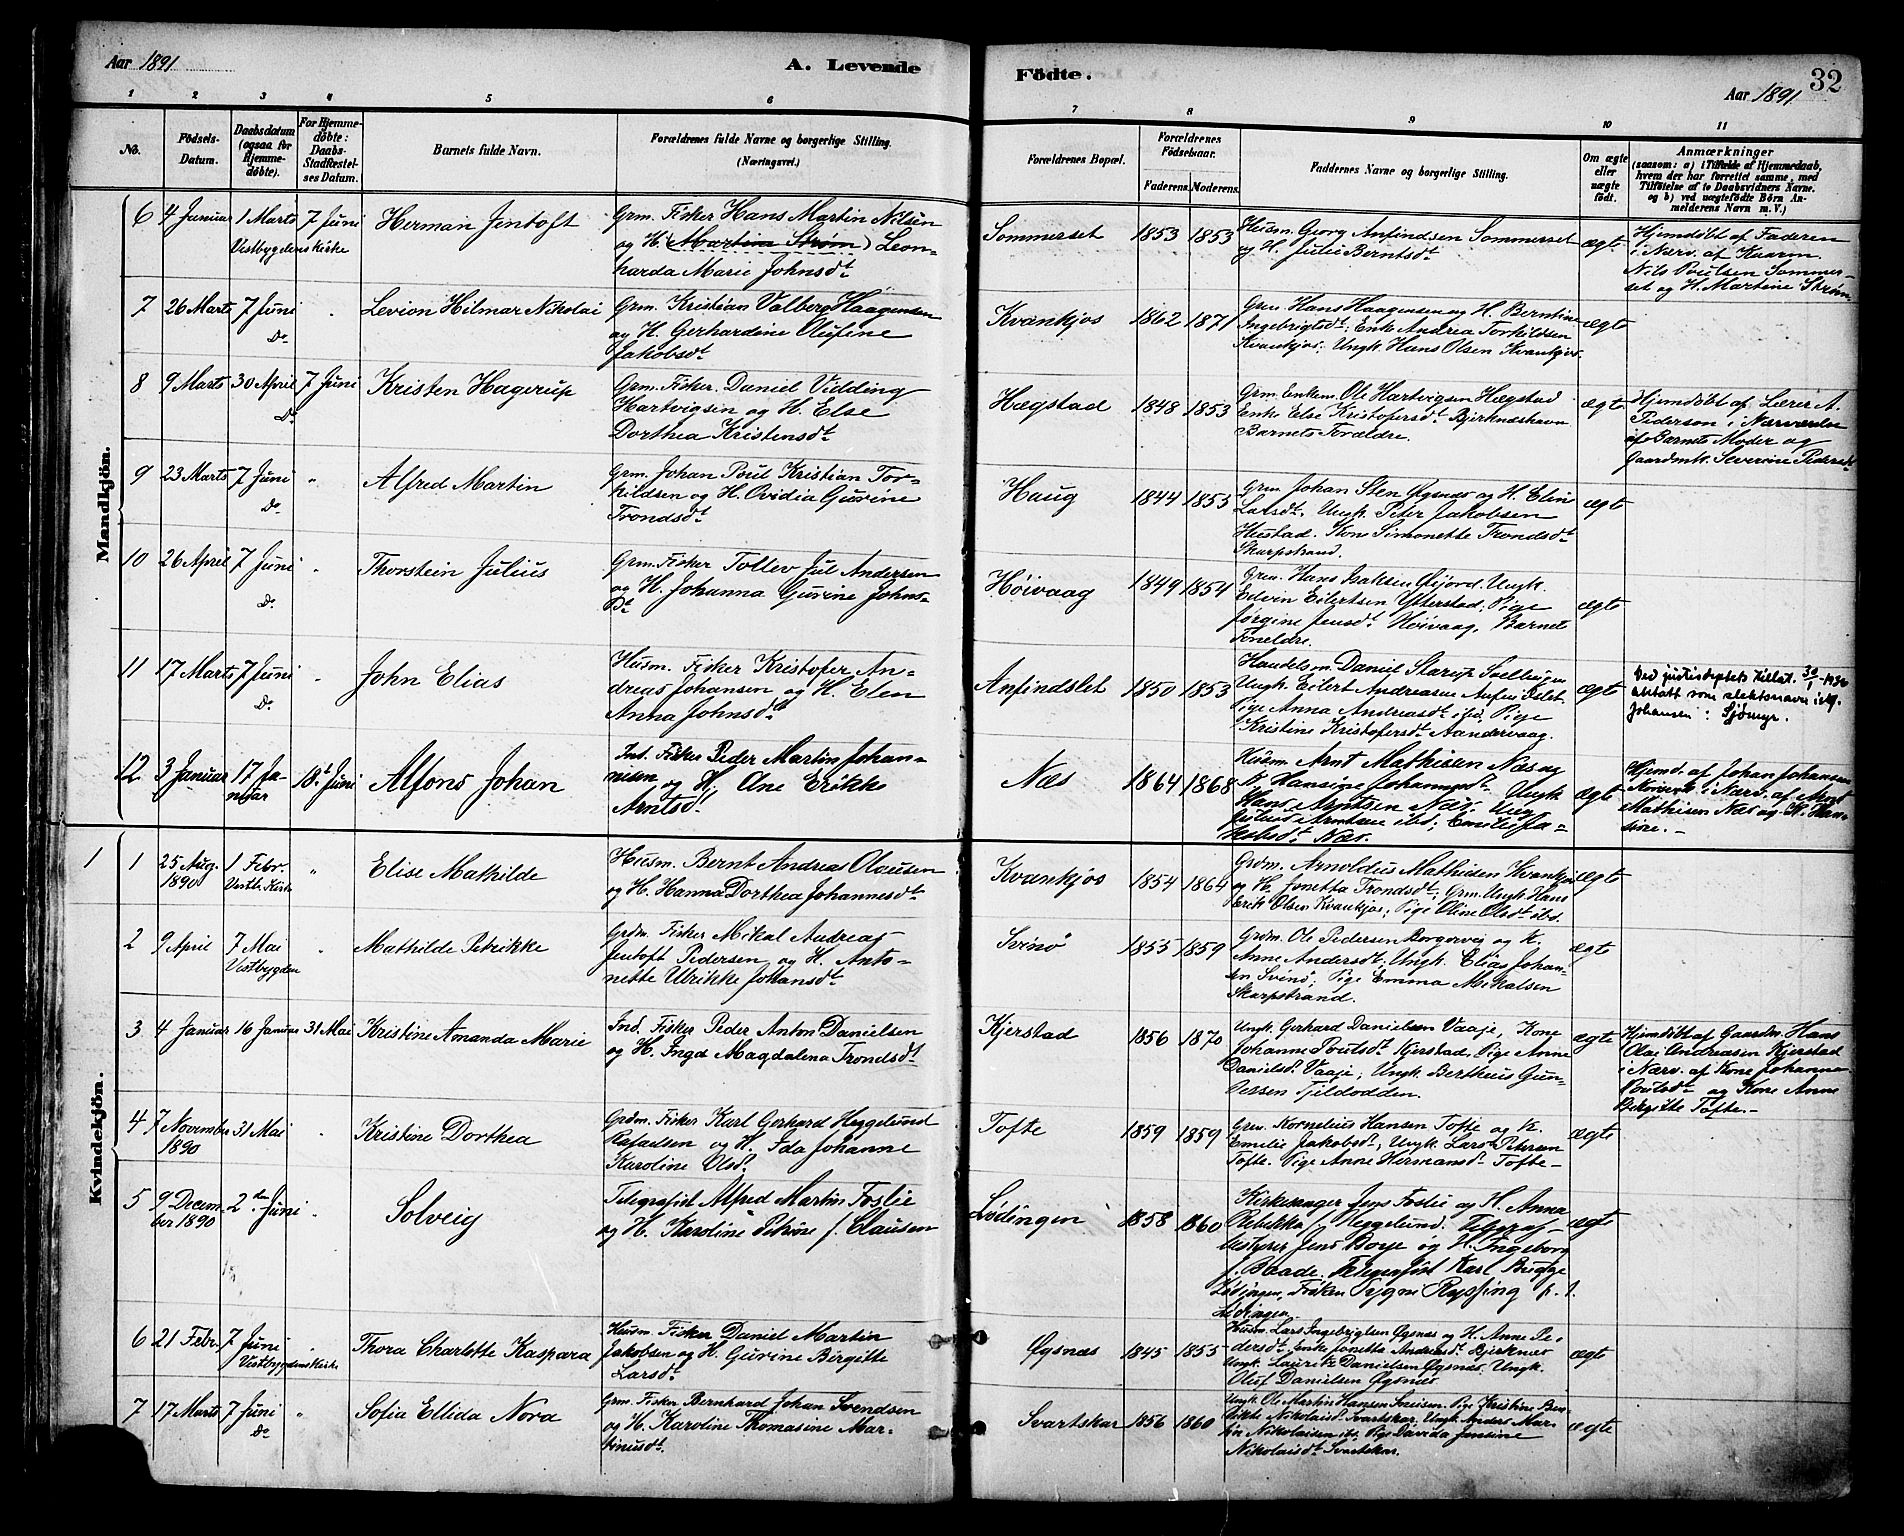 Aar 1891
A. Levende
Födte.
32
Aar 1891
1 2 3 4 5 6 7 8 9 10 11
No.
Födsels-
Datum.
Daabsdatum
(ogsaa for
Hjemme-
döbte).
For Hjemme-
döbte:
Daabs-
Stadfæstel-
ses Datum.
Barnets fulde Navn.
Forældrenes fulde Navne og borgerlige Stilling.
(Næringsvei.)
Forældrenes Bopæl.
Forældrenes
Födselsaar.
Faderens. Moderens.
Faddernes Navne og borgerlige Stilling.
Om ægte
eller
uægte
födt.
Anmærkninger
(saasom: a) i Tilfælde af Hjemmedaab,
hvem der har forrettet samme, med
Tilföielse af to Daabsvidners Navne.
og b) ved uægtefödte Börn An-
melderens Navn m. V.)
Mandkjön.
6 4 Januar 1 Marts 7 Juni
Vestbygdens Kirke
Herman Jentoft
Grm. Fisker Hans Martin Nilsen
og H. (Martina Strøm) Leon-
harda Marie Johnsdt
Sommerset 1853 1853
Husm. Georg Anfindsen Sommerset
og H. Julie Berntsdt
ægte
Hjemdöbt af Faderen
i Nærv. af Kaarm.
Nils Poulsen Sommer-
set og H. Martine Strøm
7 26 Marts 7 Juni "
Do
Levion Hilmar Nikolai
Grm. Kristian Valberg Haagensen
og H. Gerhardine Olufine
Jakobsdt
Kvankjos 1862 1871
Grm. Hans Haagensen og H. Berntine
Ingebrigtsdt; Enke Andrea Torkildsen
Kvankjos; Ungk. Hans Olsen Kvankjos.
ægte
8 9 Marts 30 April 7 Juni
Do
Kristen Hagerup
Grm. Fisker Daniel Vidding
Hartvigsen og H. Else
Dorthea Kristensdt
Hægstad 1848 1853
Grm. Enkem. Ole Hartvigsen Hægstad
Enke Else Kristofersdt Bjerkneshavn
Barnets Forældre.
ægte
Hjemdöbt af Lærer A.
Pederson i Nærværelse
af Barnets Moder og
Gaardmk. Severine Pedersdt
9 23 Marts 7 Juni "
Do
Alfred Martin
Grm. Johan Poul Kristian Tor-
kildsen og H. Ovidia Gurine
Trondsdt
Haug 1844 1853
Grm. Johan Sten Øgsnæs og H. Elin
Larsdt, Ungk. Peter Jakobsen
Hustad. Kone Simonette Trondsdt
Skarpstrand.
ægte
10 26 April 7 Juni "
Do
Thorstein Julius
Grm. Fisker Tollev Jul Andersen
og H. Johanna Gurine Johns-
Dt
Høivaag 1849 1854
Grm. Hans Isaksen Øijord. Ungk.
Edvin Eilertsen Ytterstad; Pige
Jørgine Jensdt Høivaag, Barnets
Forældre.
ægte
11 17 Marts 7 Juni "
Do
John Elias
Husm. Fisker Kristofer An-
dreas Johansen og H. Elen
Anna Johnsdt
Anfindslet 1850 1853
Handelsm. Daniel
Ungk. Eilert Andreasen Anfindslet
Pige Anna Andreasdt ibd, Pige
Kristine Kristofersdt Aandervaag.
ægte
Ved justisdeptets tillat. 30/1-1930
som slektsnavn
Johansen: Sjömyr.
12 3 Januar 17 Ja-
nuar
18. Juni
Alfons Johan
Ind. Fisker Peder Martin Johan-
nesen og H. Ane Erikke
Arntsdt
Næs 1864 1868
Husm Arnt Mathisen Næs og
H. Hansine Johannesdt. Ungk
Hans Arntsen Næs. Ung
Arntsen ibd; Emilie Ja-
kobsdt Næs.
ægte
Hjemd. af Johan Johansen
i Nærv. af Arnt
Mathisen Næs og K. Han-
sine.-
Kvindekjön.
1
1 25 Aug. 1 Febr. "
1890 Vestb. Kirke
Elise Mathilde
Husm. Bernt Andreas Olausen
og H. Hanna Dorthea Johannesdt
Kvankjos 1854 1864
Grdm. Arnoldus Mathisen Kvankjos
og H. Jonetta Trondsdt; Grm. Ungk Hans
Erik Olsen Kvankjos; Pige Oline Olsdt ibd.
ægte
2 9 April 7 Mai "
Vestbygden
Mathilde Petrikke
Grdm. Fisker Mikal Andreas
Jentoft Pedersen og H. Anto-
nette Ulrikke Johansdt
Svinø 1855 1859
Grdm. Ole Pedersen Borgervei og K.
Anne Andersdt; Ungk. Elias Johan-
sen Svinø; Pige Emma Mikalsen
Skarpstrand.
ægte
3 4 Januar 16 Januar 31 Mai
Kristine Amanda Marie
Ind. Fisker Peder Anton Danielsen
og H. Inga Magdalena Trondsdt
Kjerstad 1856 1870
Ungk. Gerhard Danielsen Vaaje, Kone
Johanne Poulsdt Kjerstad, Pige Anne
Danielsdt Vaaje; Ungk. Bertheus Gun-
dersen Tjeldodden.
ægte
Hjemdöbt af Gaardm. Hans
Olai Andreasen Kjerstad
i Nærv. af Kone Johanna
Poulsdt og Kone Anne
Birgitte Tofte.-
4 7 November 31 Mai "
1890
Kristine Dorthea
Grdm. Fisker Karl Gerhard Heggelund
Rafaelsen og H. Ida Johanne
Karoline Olsdt
Tofte 1859 1859
Grm. Kornelius Hansen Tofte og K.
Emelie Jakobsdt; Ungk. Lars Petersen
Tofte. Pige Anne Hermansdt Tofte-
ægte
5 9 Decem- 2den Juni "
ber 1890
Solveig
Telegrafist Alfred Martin Foslie
og H. Karoline Petrine f. Clausen
Lødingen 1858 1860
Kirkesanger Jens Foslie og H. Anna
Rebekka f. Heggelund. Telegraf-
bestyrer Jens Boye og H. Ingeborg
f. Baade. Telegrafist Karl Bugge
Lødingen, Frøken Signe Rypping p. t.
Lødingen
ægte
6 21 Febr. 7 Juni "
Vestbygdens Kirke
Thora Charlotte Kaspara
Husm. Fisker Daniel Martin
Jakobsen og H. Gurine Birgitte
Larsdt
Øgsnæs 1845 1855
Husm. Lars Ingebrigtsen Øgsnæs og H. Anne Pe-
dersdt. Enke Jonetta Andreasdt Bjerknes
Ungk. Lauritz Danielsen Øgsnæs. Ungk.
Oluf Danielsen Øgsnæs.
ægte
7 17 Marts 7 Juni "
Do
Sofia Ellida Nora
Grm. Fisker Bernhard Johan Svendsen
og H. Karoline Thomasine Mar-
tinusdt.
Svartskar 1856 1860
Ungk. Ole Martin Hansen Pige Kristine Ben-
dikte Nikolaisdt Svartskar, Ungk. Anders Mar-
tin Nikolaisen ibd, Pige Davida Jensine
Nikolaisdt Svartskar.
ægte